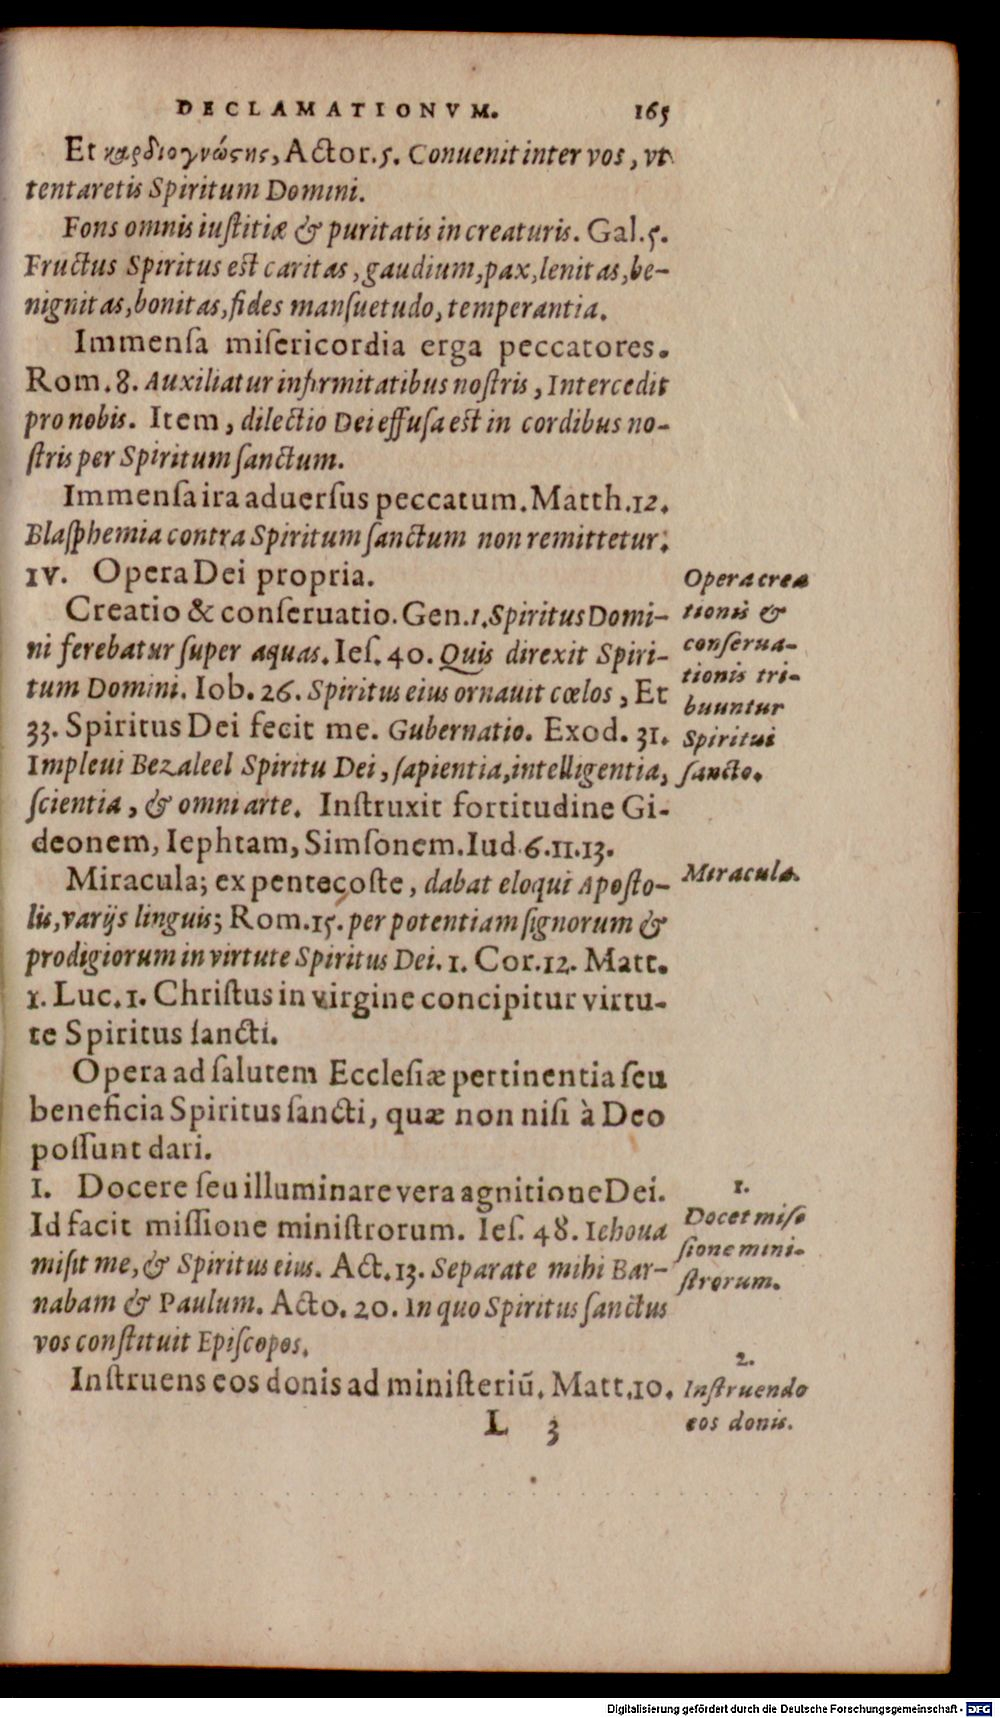 DECLAMATIONVM. 165
Et καρδιογνώϛης, Actor.5. Conuenit inter vos, vt
tentaretis Spiritum Domini.
Fons omnis iuſtitiæ & puritatis in creaturis. Gal.5.
Fructus Spiritus est caritas, gaudium, pax, lenitas, be-
nignitas, bonitas, fides manſuetudo, temperantia.
Immenſa miſericordia erga peccatores.
Rom.8. Auxiliatur infirmitatibus noſtris, Intercedit
pro nobis. Item, dilectio Dei effuſa est in cordibus no-
ſtris per Spiritum ſanctum.
Immenſa ira aduerſus peccatum. Matth.12.
Blaſphemia contra Spiritum ſanctum non remittetur.
IV. Opera Dei propria.
Creatio & conſeruatio. Gen.1. Spiritus Domi-
ni ferebatur ſuper aquas. Ieſ. 40. Quis direxit Spiri-
tum Domini. Iob. 26. Spiritus eius ornauit cœlos, Et
33. Spiritus Dei fecit me. Gubernatio. Exod. 31.
Impleui Bezaleel Spiritu Dei, ſapientia, intelligentia,
ſcientia, & omni arte. Inſtruxit fortitudine Gi-
deonem, Iephtam, Simſonem. Iud.6.11.13.
Opera crea
tionis &
conſerua-
tionis tri-
buuntur
Spiritui
ſancto.
Miracula; ex pentecoſte, dabat eloqui Apoſto-
lis, varijs linguis; Rom.15. per potentiam ſignorum &
prodigiorum in virtute Spiritus Dei. 1. Cor.12. Matt.
1. Luc.1. Chriſtus in virgine concipitur virtu-
te Spiritus ſancti.
Miracula.
Opera ad ſalutem Eccleſiæ pertinentia ſeu
beneficia Spiritus ſancti, quæ non niſi à Deo
poſſunt dari.
I. Docere ſeu illuminare vera agnitione Dei.
Id facit miſſione miniſtrorum. Ieſ. 48. Iehoua
miſit me, & Spiritus eius. Act.13. Separate mihi Bar-
nabam & Paulum. Acto. 20. In quo Spiritus ſanctus
vos conſtituit Epiſcopos.
1.
Docet miſ-
ſione mini-
ſtrorum.
Inſtruens eos donis ad miniſteriū. Matt.10.
2.
Inſtruendo
eos donis.
L 3
Digitalisierung gefördert durch die Deutsche Forschungsgemeinschaft - DFG